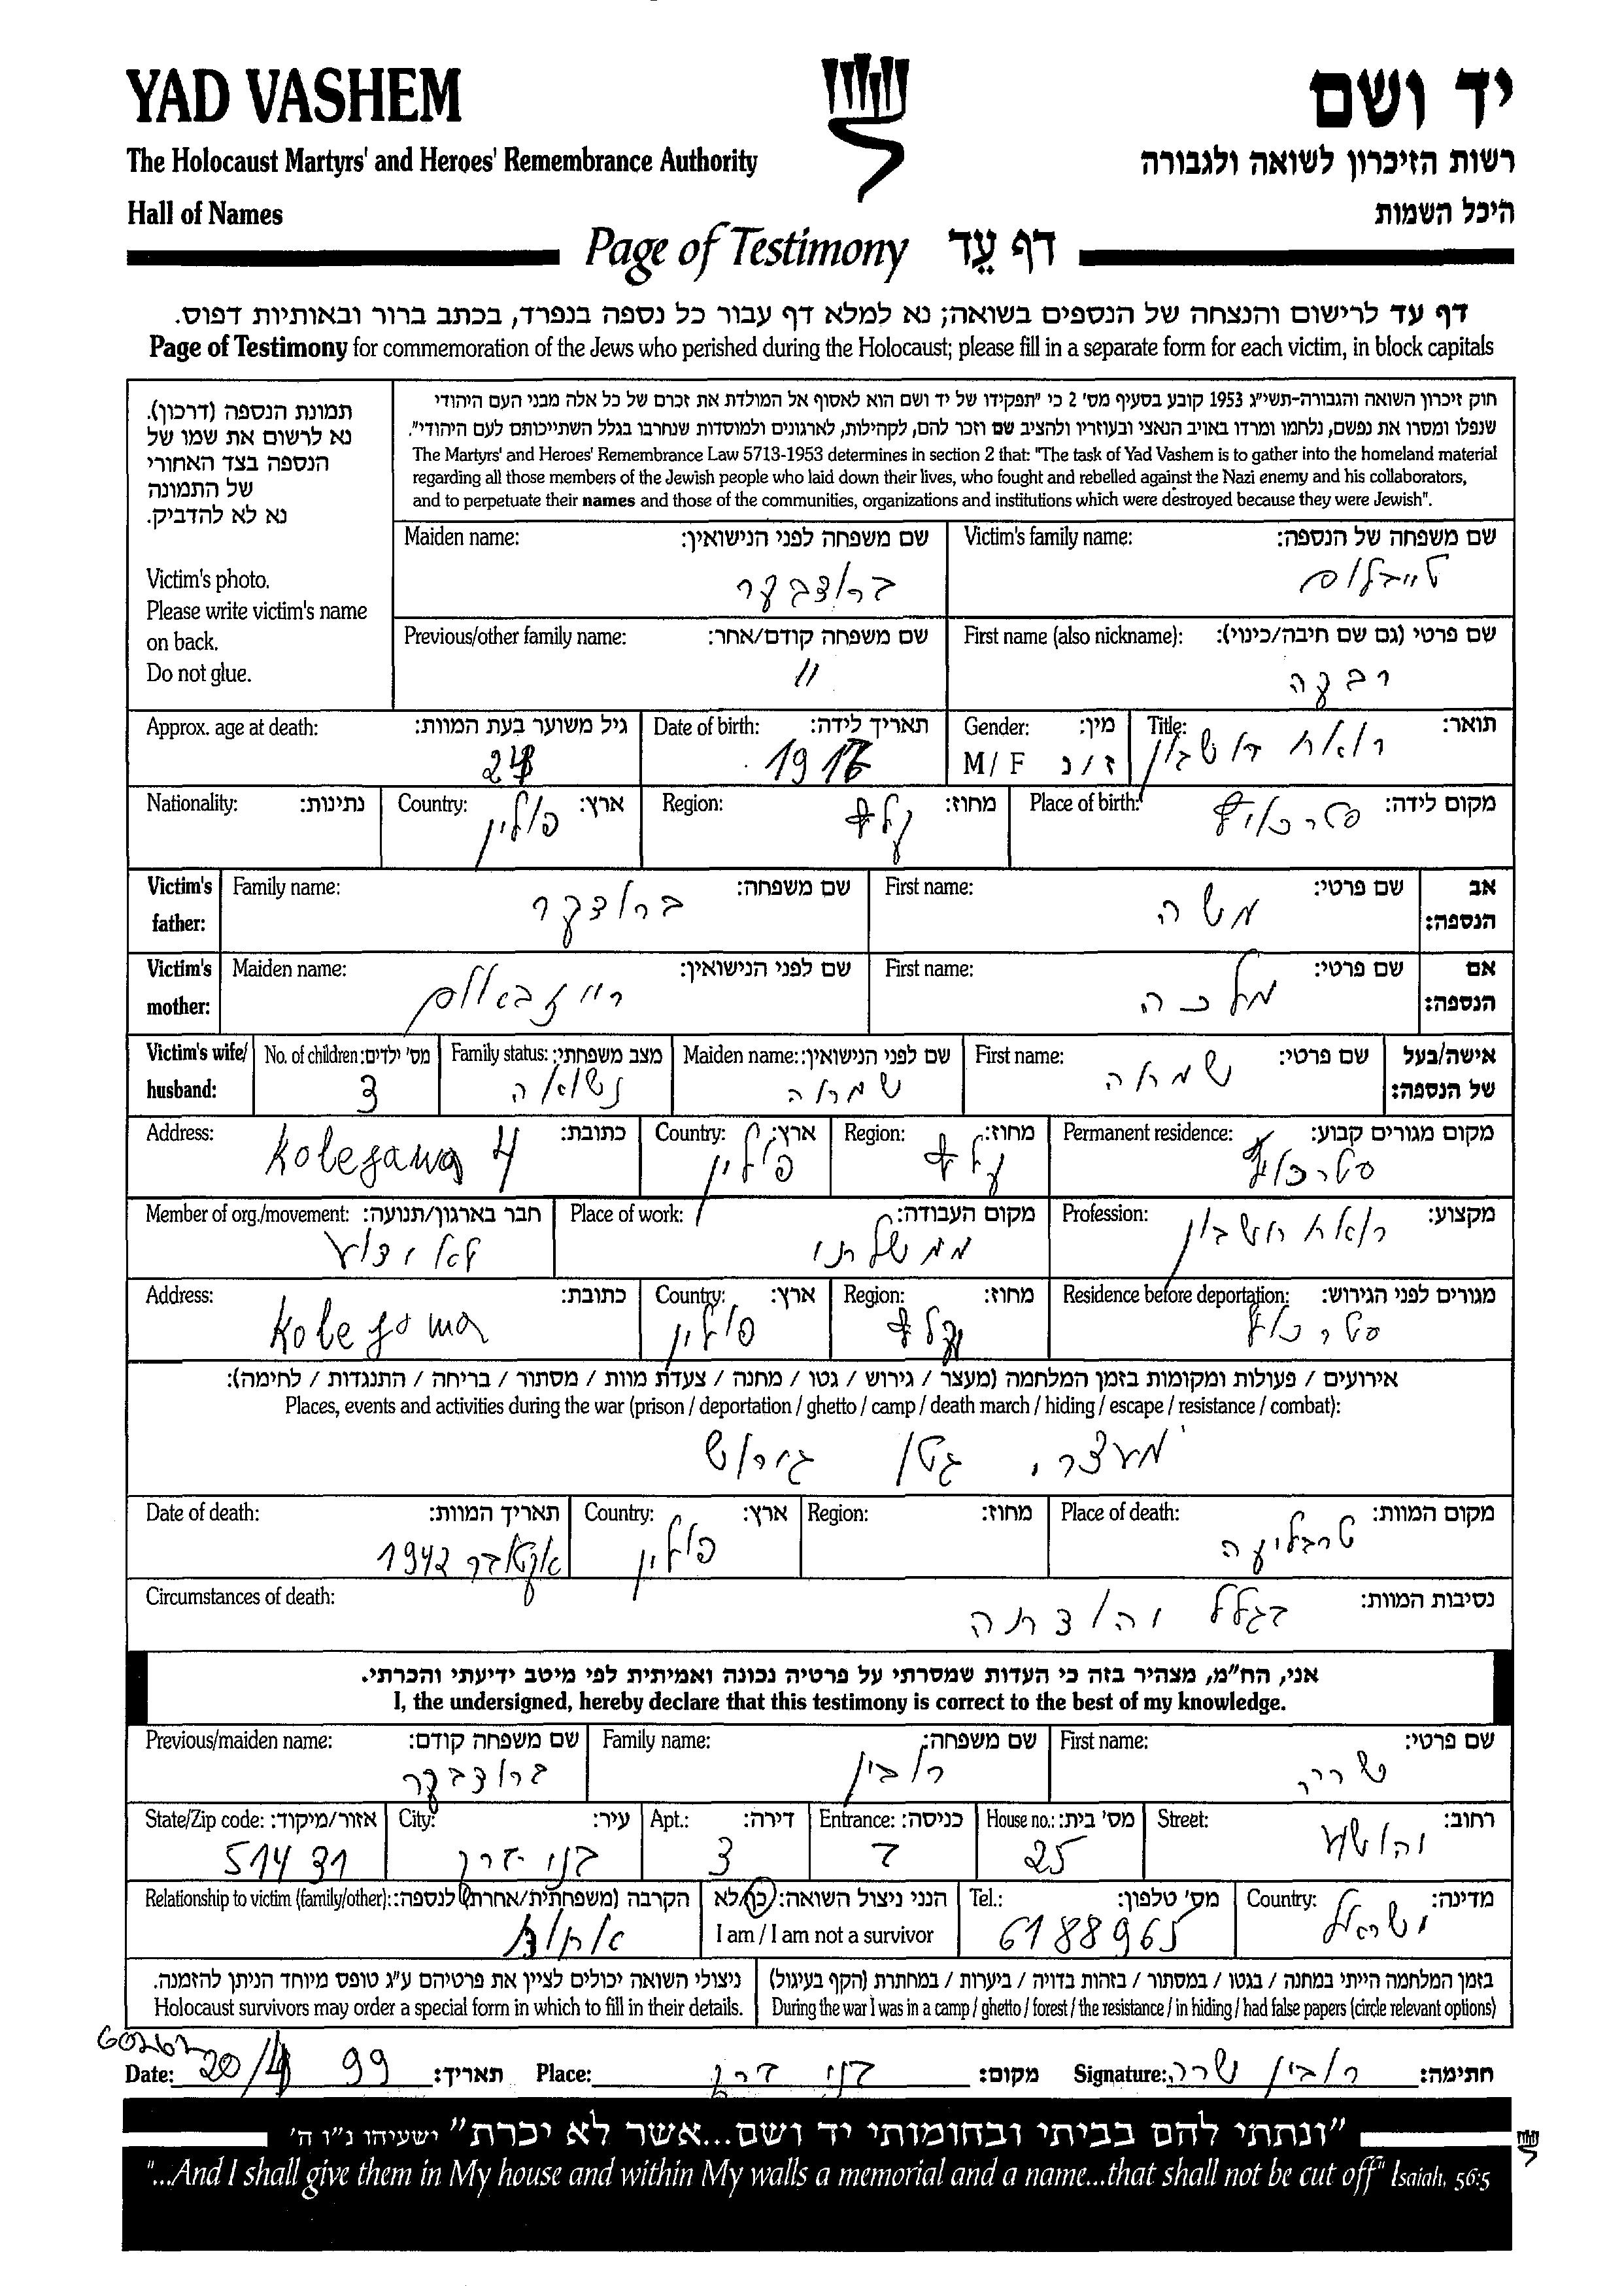 YAD VASHEM
יד ושם
The Holocaust Martyrs' and Heroes' Remembrance Authority
רשות הזיכרון לשואה ולגבורה
Hall of Names
היכל השמות
Page of Testimony דף עֵד
דף עד לרישום והנצחה של הנספים בשואה; נא למלא דף עבור כל נספה בנפרד, בכתב ברור ובאותיות דפוס.
Page of Testimony for commemoration of the Jews who perished during the Holocaust; please fill in a separate form for each victim, in block capitals
תמונת הנספה (דרכון).
נא לרשום את שמו של
הנספה בצד האחורי
של התמונה
נא לא להדביק.
Victim's photo.
Please write victim's name
on back.
Do not glue.
חוק זיכרון השואה והגבורה-תשי"ג 1953 קובע בסעיף מס' 2 כי "תפקידו של יד ושם הוא לאסוף אל המולדת את זכרם של כל אלה מבני העם היהודי
שנפלו ומסרו את נפשם, נלחמו ומרדו באויב הנאצי ובעוזריו ולהציב שם וזכר להם, לקהילות, לארגונים ולמוסדות שנחרבו בגלל השתייכותם לעם היהודי".
The Martyrs' and Heroes' Remembrance Law 5713-1953 determines in section 2 that: "The task of Yad Vashem is to gather into the homeland material
regarding all those members of the Jewish people who laid down their lives, who fought and rebelled against the Nazi enemy and his collaborators,
and to perpetuate their names and those of the communities, organizations and institutions which were destroyed because they were Jewish".
Victim's family name: שם משפחה של הנספה:
טייבלום
Maiden name: שם משפחה לפני הנישואין:
First name (also nickname): שם פרטי (גם שם חיבה/כינוי):
רבקה
Previous/other family name: שם משפחה קודם/אחר:
"
Title: תואר:
Gender: מין:
M / F ז / נ
Date of birth: תאריך לידה:
Approx. age at death: גיל משוער בעת המוות:
Place of birth: מקום לידה:
Region: מחוז:
Country: ארץ:
פולין
Nationality: נתינות:
Victim's father: אב הנספה:
First name: שם פרטי:
משה
Family name: שם משפחה:
Victim's mother: אם הנספה:
First name: שם פרטי:
מלכה
Maiden name: שם לפני הנישואין:
Victim's wife/ husband: אישה/בעל של הנספה:
First name: שם פרטי:
Maiden name: שם לפני הנישואין:
Family status: מצב משפחתי:
נשואה
No. of children: מס' ילדים:
3
Permanent residence: מקום מגורים קבוע:
Region: מחוז:
Country: ארץ:
פולין
Address: כתובת:
Kolejowa 4
Profession: מקצוע:
רואת חשבון
Place of work: מקום העבודה:
ממשלתי
Member of org./movement: חבר בארגון/תנועה:
לא ידוע
Residence before deportation: מגורים לפני הגירוש:
Region: מחוז:
Country: ארץ:
פולין
Address: כתובת:
Kolejowa
אירועים / פעולות ומקומות בזמן המלחמה (מעצר / גירוש / גטו / מחנה / צעדת מוות / מסתור / בריחה / התנגדות / לחימה):
Places, events and activities during the war (prison / deportation / ghetto / camp / death march / hiding / escape / resistance / combat):
מעצר, גטו גירוש
Place of death: מקום המוות:
טרבלינקה
Region: מחוז:
Country: ארץ:
פולין
Date of death: תאריך המוות:
אוקטובר 1942
Circumstances of death: נסיבות המוות:
אני, הח"מ, מצהיר בזה כי העדות שמסרתי על פרטיה נכונה ואמיתית לפי מיטב ידיעתי והכרתי.
I, the undersigned, hereby declare that this testimony is correct to the best of my knowledge.
First name: שם פרטי:
שרה
Family name: שם משפחה:
רובין
Previous/maiden name: שם משפחה קודם:
Street: רחוב:
יהושע
House no.: מס' בית:
25
Entrance: כניסה:
ד
Apt.: דירה:
3
City: עיר:
בני ברק
State/Zip code: אזור/מיקוד:
51431
Country: מדינה:
ישראל
Tel.: מס' טלפון:
6188965
הנני ניצול השואה: כן/לא
I am / I am not a survivor
Relationship to victim (family/other): הקרבה (משפחתית/אחרת) לנספה:
אחות
בזמן המלחמה הייתי במחנה / בגטו / במסתור / בזהות בדויה / ביערות / במחתרת (הקף בעיגול)
During the war I was in a camp / ghetto / forest / the resistance / in hiding / had false papers (circle relevant options)
ניצולי השואה יכולים לציין את פרטיהם ע"ג טופס מיוחד הניתן להזמנה.
Holocaust survivors may order a special form in which to fill in their details.
Signature: רובין שרה חתימה:
Place: בני ברק מקום:
Date: 20/4 99 תאריך:
"ונתתי להם בביתי ובחומותי יד ושם...אשר לא יכרת" ישעיהו נ"ו ה'
"...And I shall give them in My house and within My walls a memorial and a name...that shall not be cut off" Isaiah, 56:5